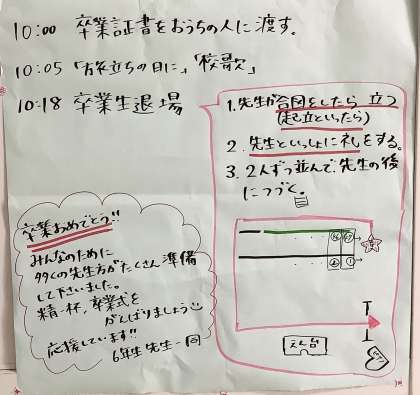 10:00 卒業証書をおうちの人に渡す。
10:05 「旅立ちの日に」「校歌」
10:18 卒業生退場
1. 先生が合図をしたら 立つ
(起立といったら)
2. 先生といっしょに礼をする。
3. 2人ずつ並んで、先生の後
につづく。
卒業おめでとう!!
みんなのために
多くの先生方がたくさん準備
して下さいました。
精一杯、卒業式を
がんばりましょう
応援しています!!
6年生 先生一同
えん台